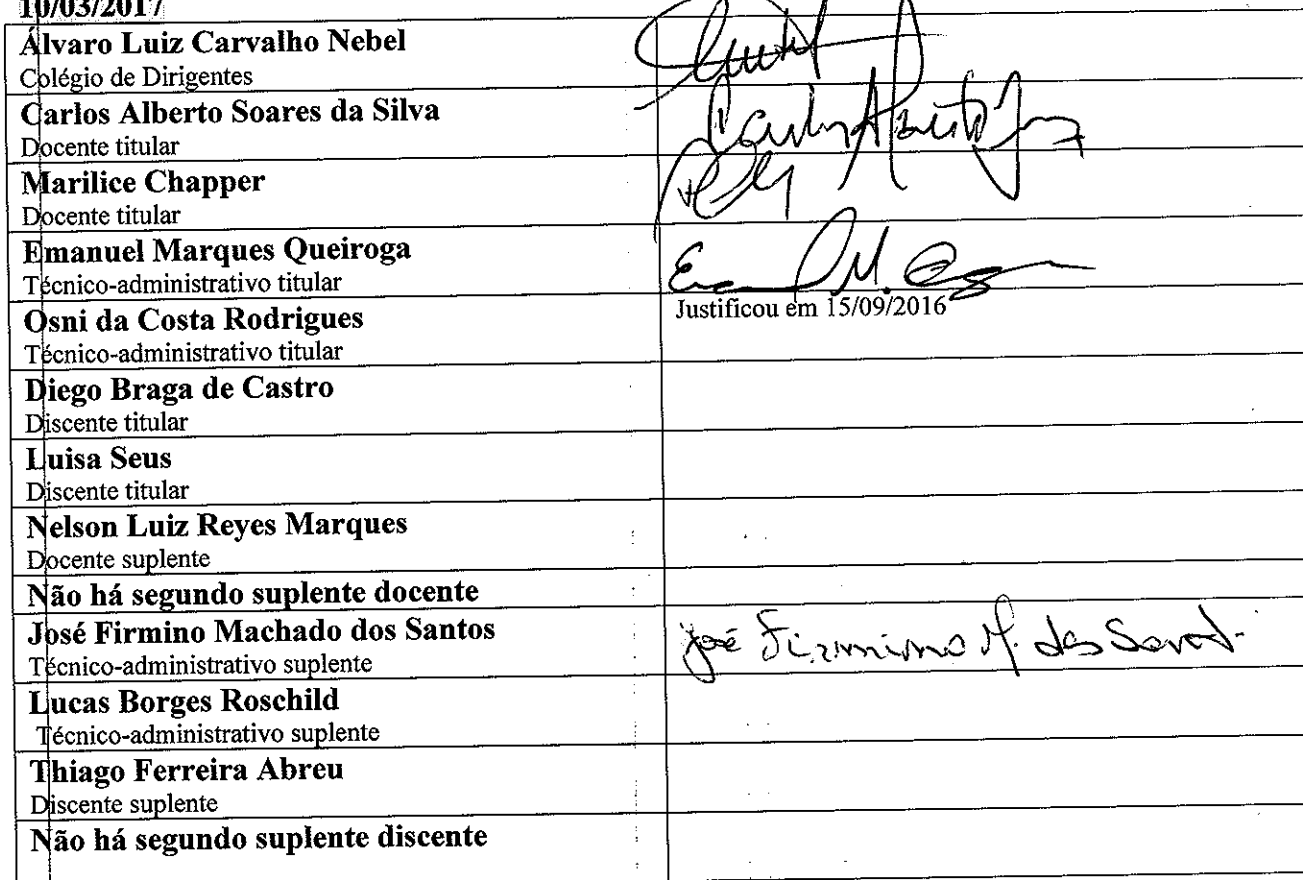 10/03/2017
Álvaro Luiz Carvalho Nebel
Colégio de Dirigentes
Carlos Alberto Soares da Silva
Docente titular
Marilice Chapper
Docente titular
Emanuel Marques Queiroga
Técnico-administrativo titular
Osni da Costa Rodrigues
Justificou em 15/09/2016
Técnico-administrativo titular
Diego Braga de Castro
Discente titular
Luisa Seus
Discente titular
Nelson Luiz Reyes Marques
Docente suplente
Não há segundo suplente docente
José Firmino Machado dos Santos
José Firmino M. dos Santos
Técnico-administrativo suplente
Lucas Borges Roschild
Técnico-administrativo suplente
Thiago Ferreira Abreu
Discente suplente
Não há segundo suplente discente